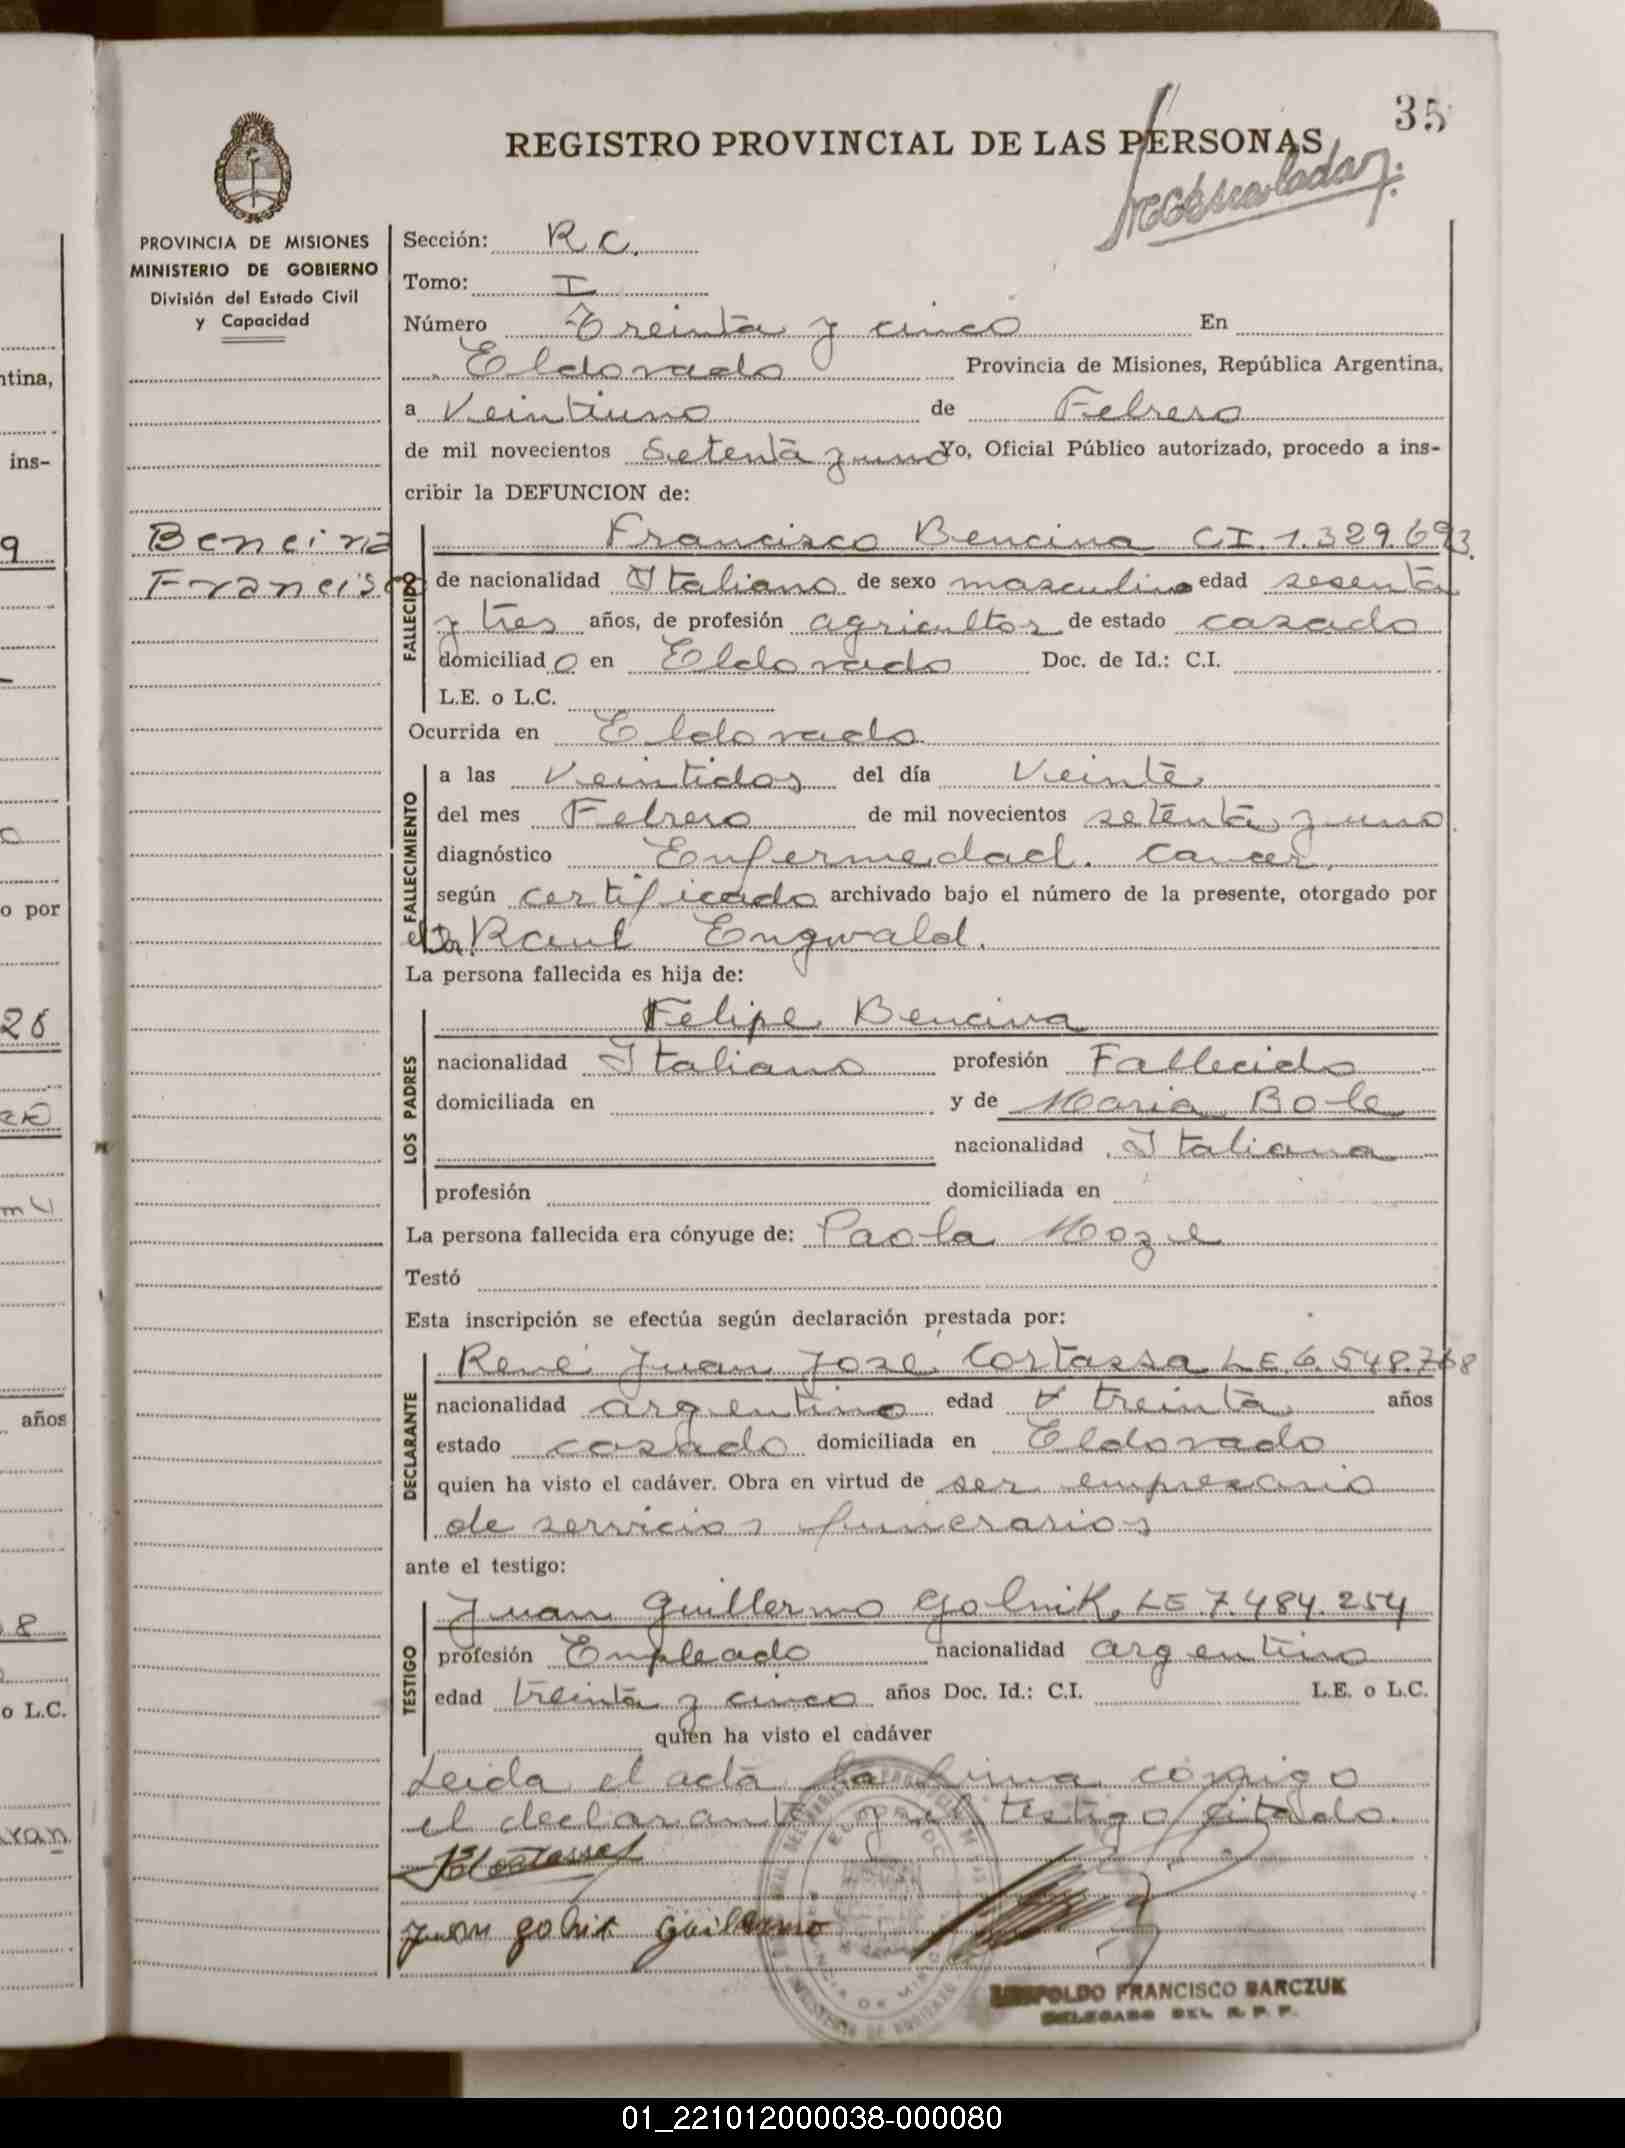 35
REGISTRO PROVINCIAL DE LAS PERSONAS
PROVINCIA DE MISIONES
MINISTERIO DE GOBIERNO
División del Estado Civil
y Capacidad
Bencina
Francisco
Sección: R C.
Tomo: I
Número Treinta y cinco En
Eldorado Provincia de Misiones, República Argentina,
a Veintiuno de Febrero
de mil novecientos Setenta y uno Yo, Oficial Público autorizado, procedo a ins-
cribir la DEFUNCION de:
FALLECIDO
Francisco Bencina CI. 1.329.693.
de nacionalidad Italiano de sexo masculino edad sesenta
y tres años, de profesión agricultor de estado casado
domiciliado en Eldorado Doc. de Id.: C.I.
L.E. o L.C.
Ocurrida en Eldorado
FALLECIMIENTO
a las Veintidos del día Veinte
del mes Febrero de mil novecientos setenta y uno.
diagnóstico Enfermedad. Cancer,
según certificado archivado bajo el número de la presente, otorgado por
el Dr. Raul Engwald.
La persona fallecida es hija de:
LOS PADRES
Felipe Bencina
nacionalidad Italiano profesión Fallecido
domiciliada en y de Maria Bole
nacionalidad Italiana
profesión domiciliada en
La persona fallecida era cónyuge de: Paola Moze
Testó
Esta inscripción se efectúa según declaración prestada por:
DECLARANTE
René Juan Jose Cortassa LE 6.548.768
nacionalidad argentino edad treinta años
estado casado domiciliada en Eldorado
quien ha visto el cadáver. Obra en virtud de ser empresario
de servicios funerarios
ante el testigo:
TESTIGO
Juan Guillermo Golnik, LE 7.484.254
profesión Empleado nacionalidad argentino
edad treinta y cinco años Doc. Id.: C.I. L.E. o L.C.
quien ha visto el cadáver
Leida el acta la firma conmigo
el declarante y el testigo citado.
Juan golnik guillermo
LEOPOLDO FRANCISCO BARCZUK
DELEGADO DEL R. P. P.
tina,
ins-
o por
años
o L.C.
01_221012000038-000080